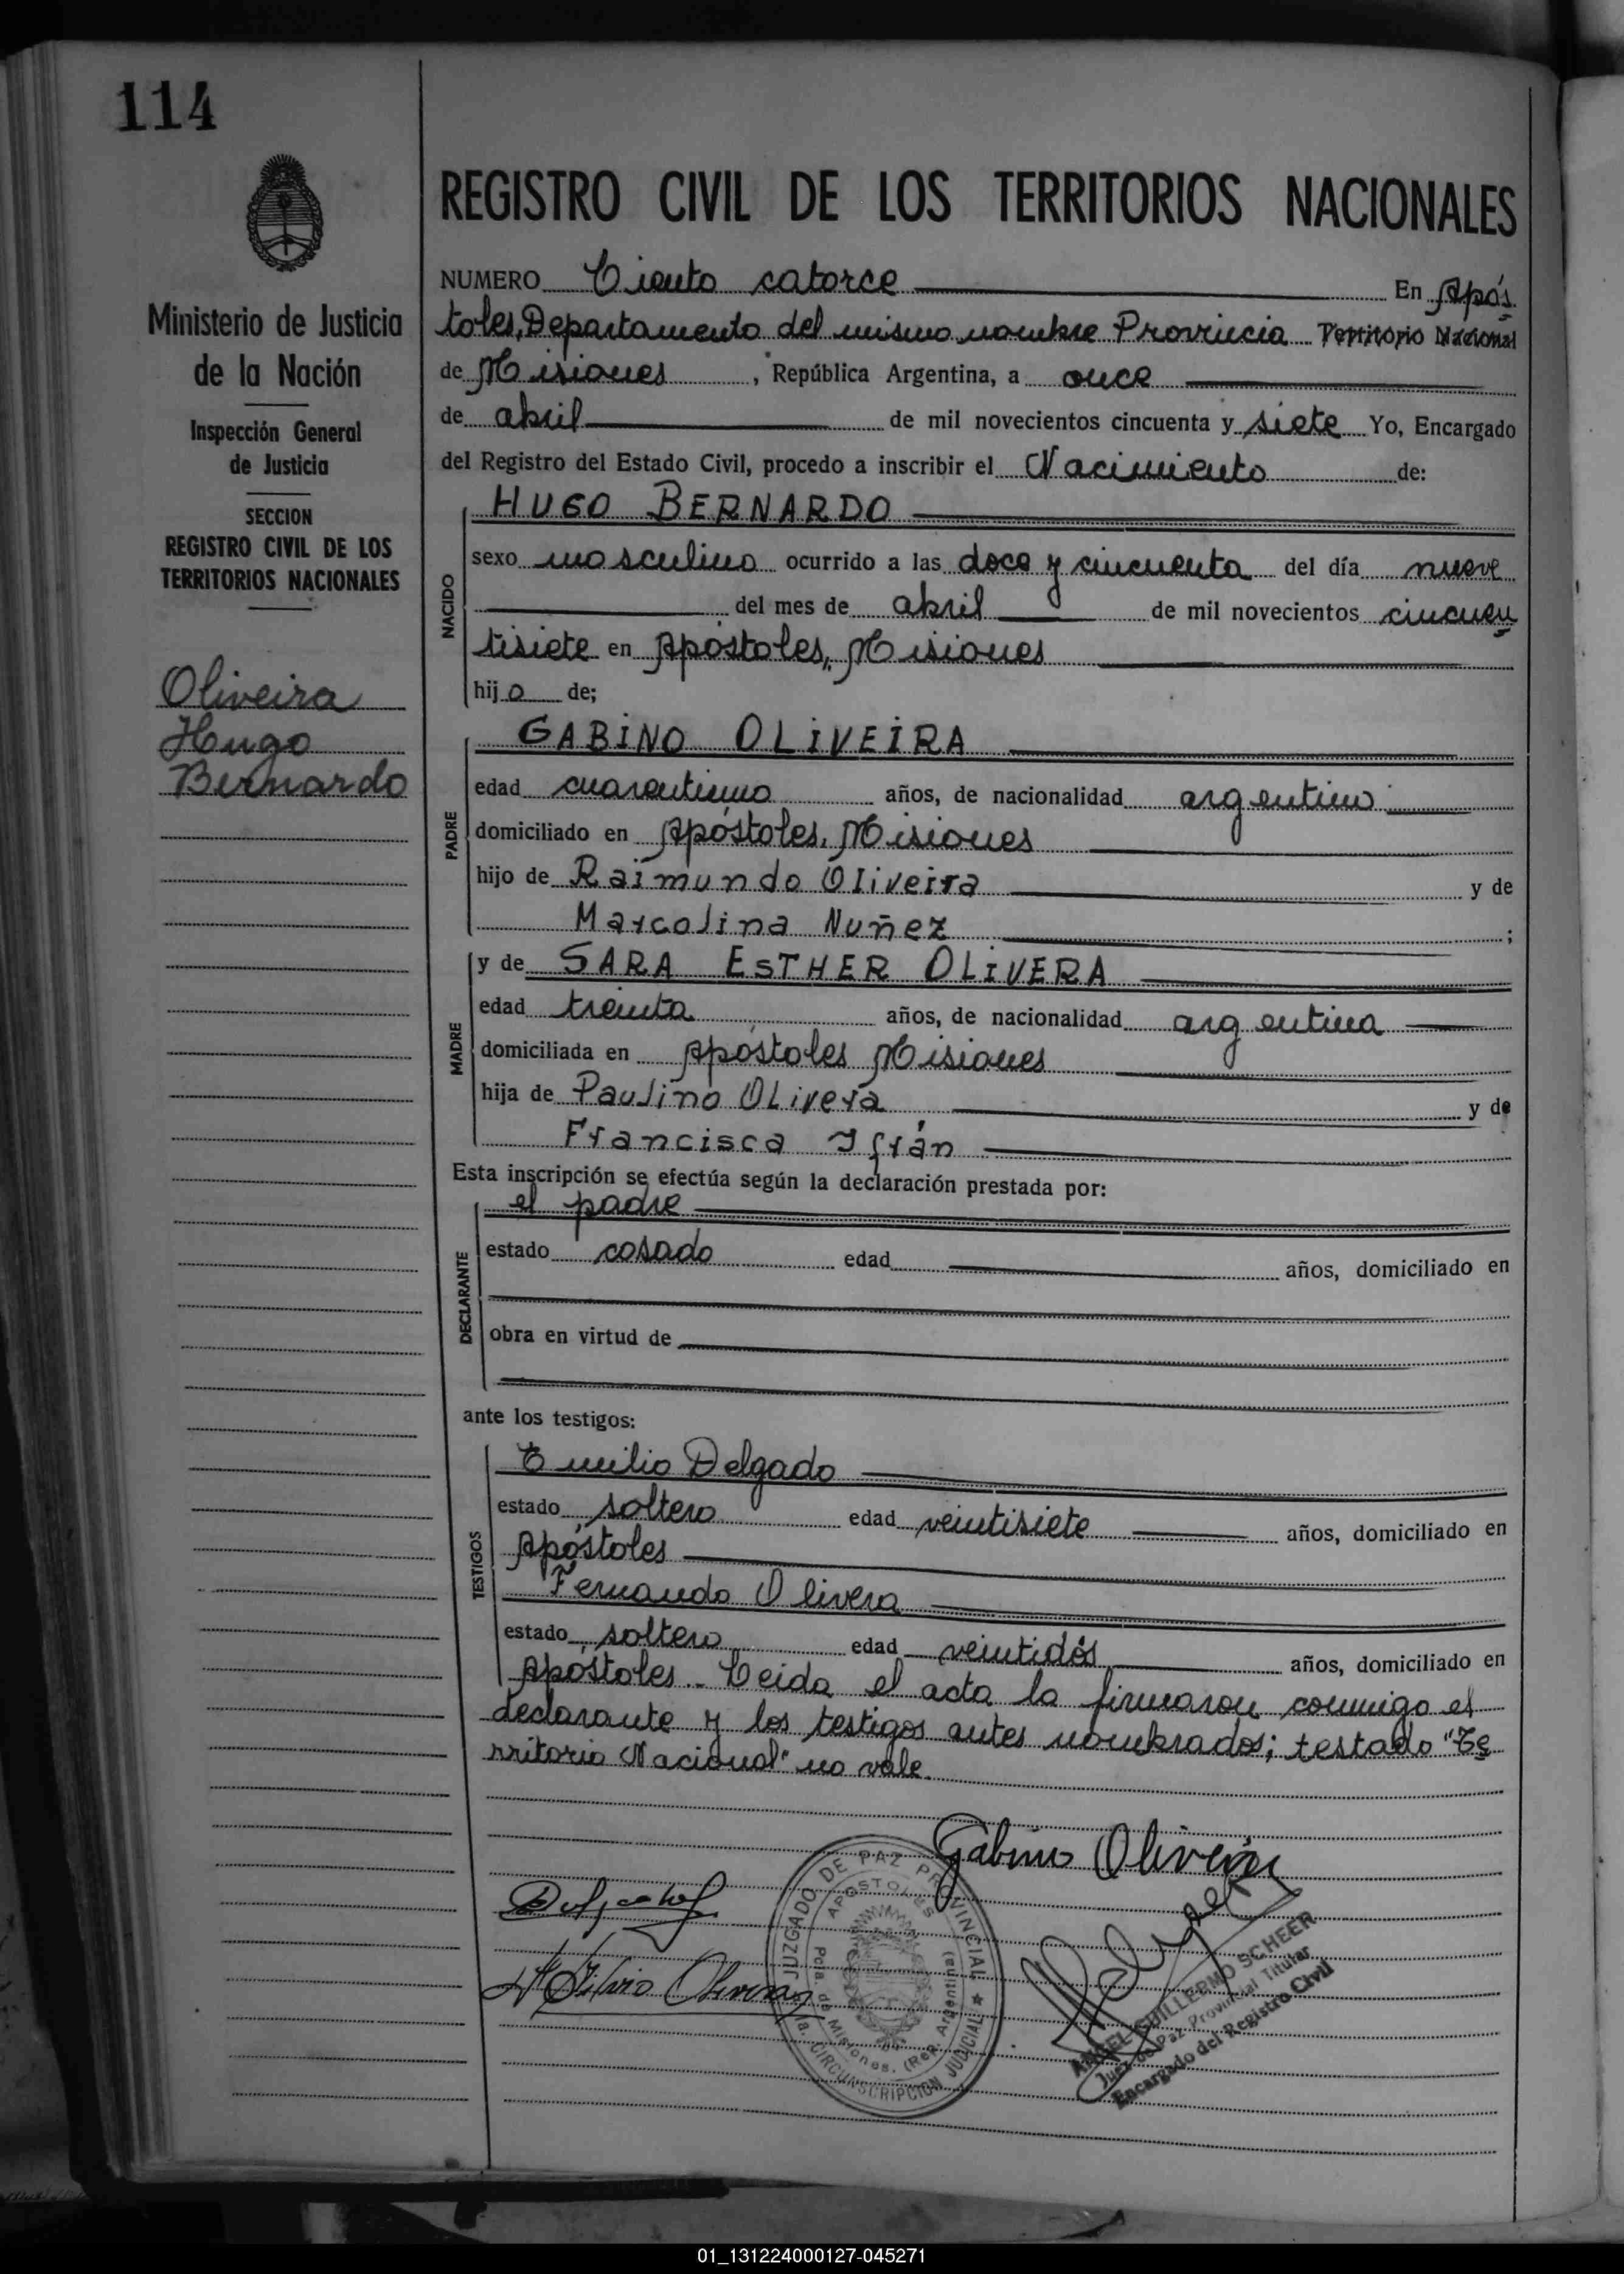 114
Ministerio de Justicia
de la Nación
Inspección General
de Justicia
SECCION
REGISTRO CIVIL DE LOS
TERRITORIOS NACIONALES
Oliveira
Hugo
Bernardo
REGISTRO CIVIL DE LOS TERRITORIOS NACIONALES
NUMERO Ciento catorce En Após
toles, Departamento del mismo nombre Provincia Territorio Nacional
de Misiones, República Argentina, a once
de abril de mil novecientos cincuenta y siete Yo, Encargado
del Registro del Estado Civil, procedo a inscribir el Nacimiento de:
NACIDO
HUGO BERNARDO
sexo masculino ocurrido a las doce y cincuenta del día nueve
del mes de abril de mil novecientos cincuen
tisiete en Apóstoles, Misiones
hijo de;
PADRE
GABINO OLIVEIRA
edad cuarentiuno años, de nacionalidad argentino
domiciliado en Apóstoles, Misiones
hijo de Raimundo Oliveira y de
Marcolina Nuñez;
MADRE
y de SARA ESTHER OLIVERA
edad treinta años, de nacionalidad argentina
domiciliada en Apóstoles Misiones
hija de Paulino Olivera y de
Francisca Ifrán
Esta inscripción se efectúa según la declaración prestada por:
DECLARANTE
el padre
estado casado edad años, domiciliado en
obra en virtud de
ante los testigos:
TESTIGOS
Emilio Delgado
estado soltero edad veintisiete años, domiciliado en
Apóstoles
Fernando Olivera
estado soltero edad veintidós años, domiciliado en
Apóstoles.. Leida el acta la firmaron conmigo el
declarante y los testigos antes nombrados; testado "Te
rritorio Nacional" no vale.
Gabino Oliveira
JUZGADO DE PAZ PROVINCIAL
APOSTOLES
Pcia. de Misiones. (Rep. Argentina)
1a. CIRCUNSCRIPCION JUDICIAL
Olivera
ANGEL GUILLERMO SCHEER
Juez de Paz Provincial Titular
Encargado del Registro Civil
01_131224000127-045271